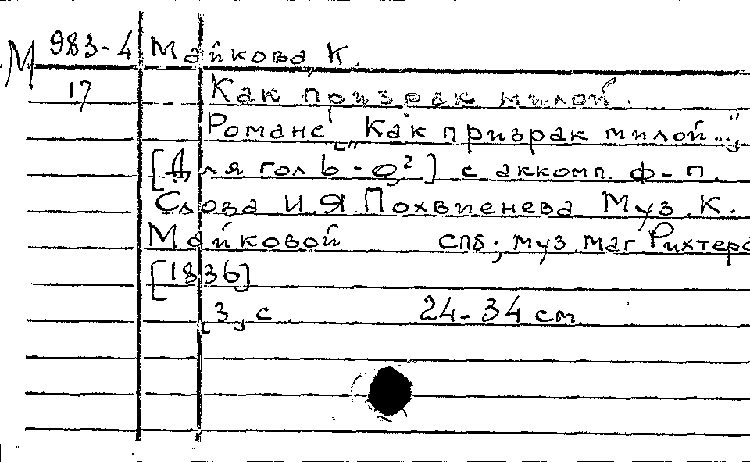 М 983-4 Майкова, К.
17 Как призрак милой.
Романс "Как призрак милой..."
[Для гол b - e²] с аккомп. ф-п.
Слова И.Я. Похвиснева Муз. К.
Майковой СПб; муз. маг. Рихтера
[1836]
[3] с 24-34 см